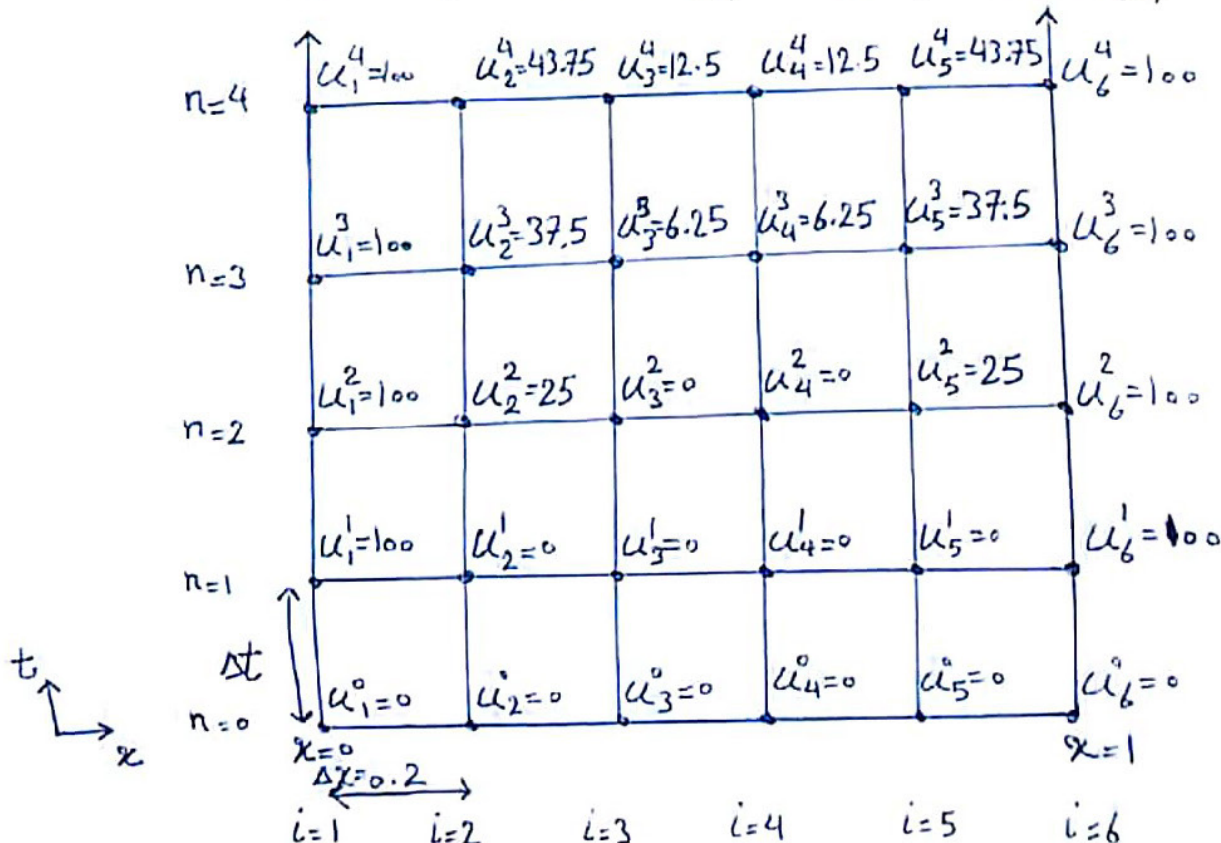 u₁⁴=100 u₂⁴=43.75 u₃⁴=12.5 u₄⁴=12.5 u₅⁴=43.75 u₆⁴=100
n=4
u₁³=100 u₂³=37.5 u₃³=6.25 u₄³=6.25 u₅³=37.5 u₆³=100
n=3
u₁²=100 u₂²=25 u₃²=0 u₄²=0 u₅²=25 u₆²=100
n=2
u₁¹=100 u₂¹=0 u₃¹=0 u₄¹=0 u₅¹=0 u₆¹=100
n=1
t Δt
u₁⁰=0 u₂⁰=0 u₃⁰=0 u₄⁰=0 u₅⁰=0 u₆⁰=0
n=0
x x=0 x=1
Δx=0.2
i=1 i=2 i=3 i=4 i=5 i=6